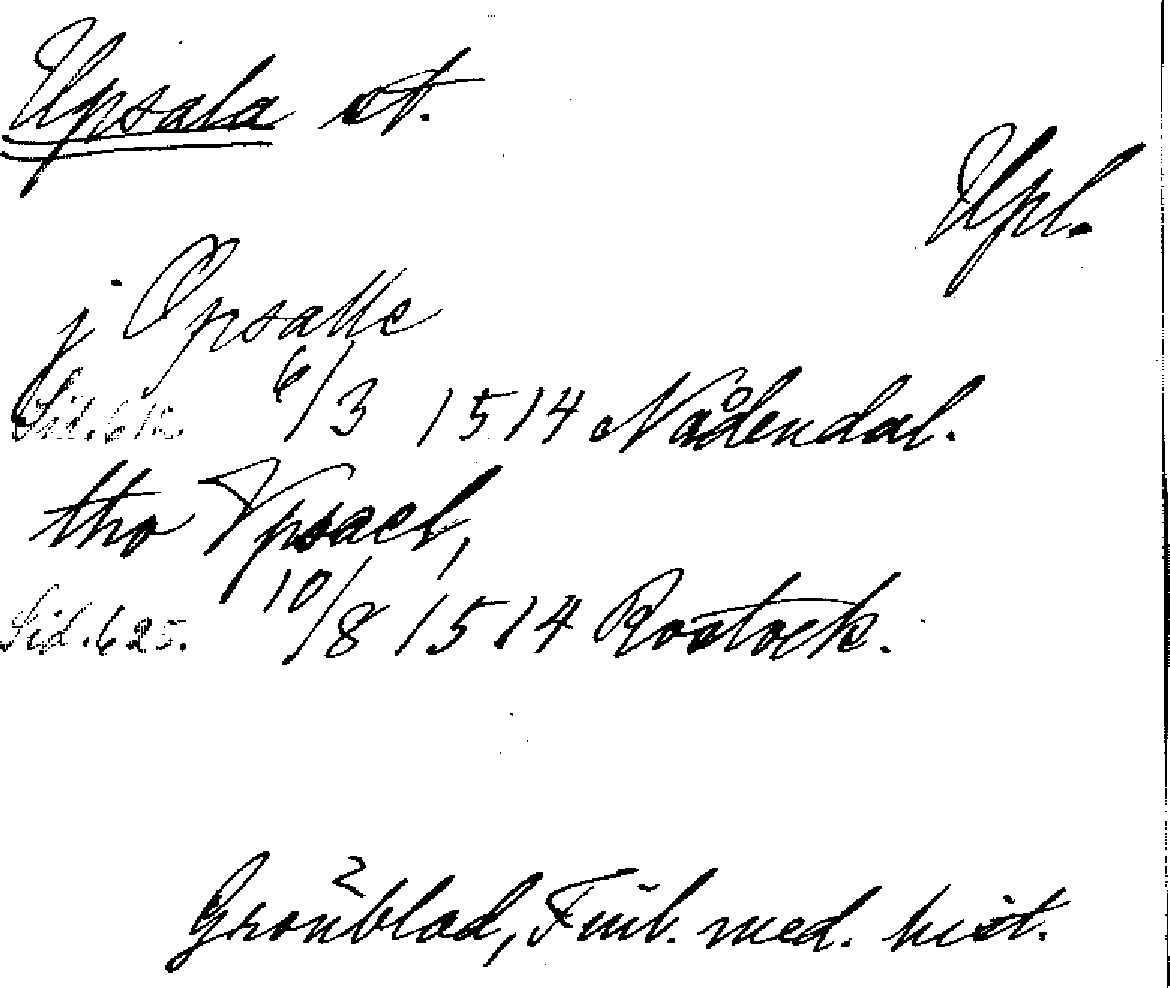 Upsala st.
Upl.
j Opsalle
Sid. 612. 6/3 1514 Nådendal.
tho Vpsael,
Sid. 625. 10/8 1514 Rostock.
Grönblad, Finl. med. hist.